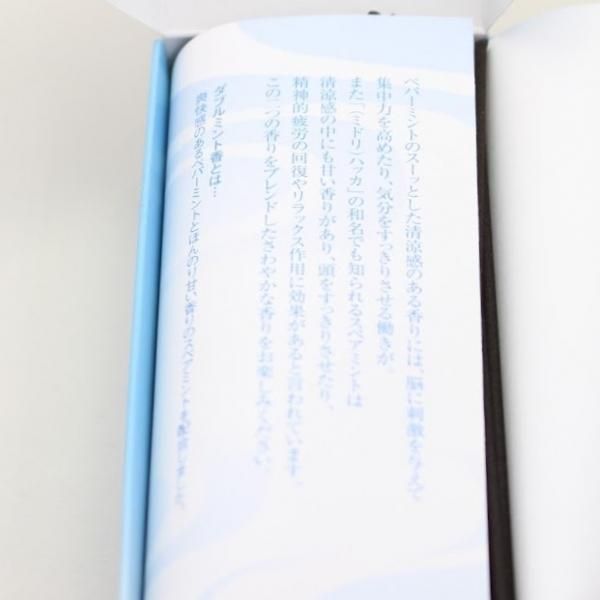 ペパーミントのスーッとした清涼感のある香りには、脳に刺激を与えて
集中力を高めたり、気分をすっきりさせる働きが、
また「(ミドリ)ハッカ」の和名でも知られるスペアミントは
清涼感の中にも甘い香りがあり、頭をすっきりさせたり、
精神的疲労の回復やリラックス作用に効果があると言われています。
この二つの香りをブレンドしたさわやかな香りをお楽しみください。
ダブルミント香とは…
爽快感のあるペパーミントとほんのり甘い香りのスペアミントを配合しました。